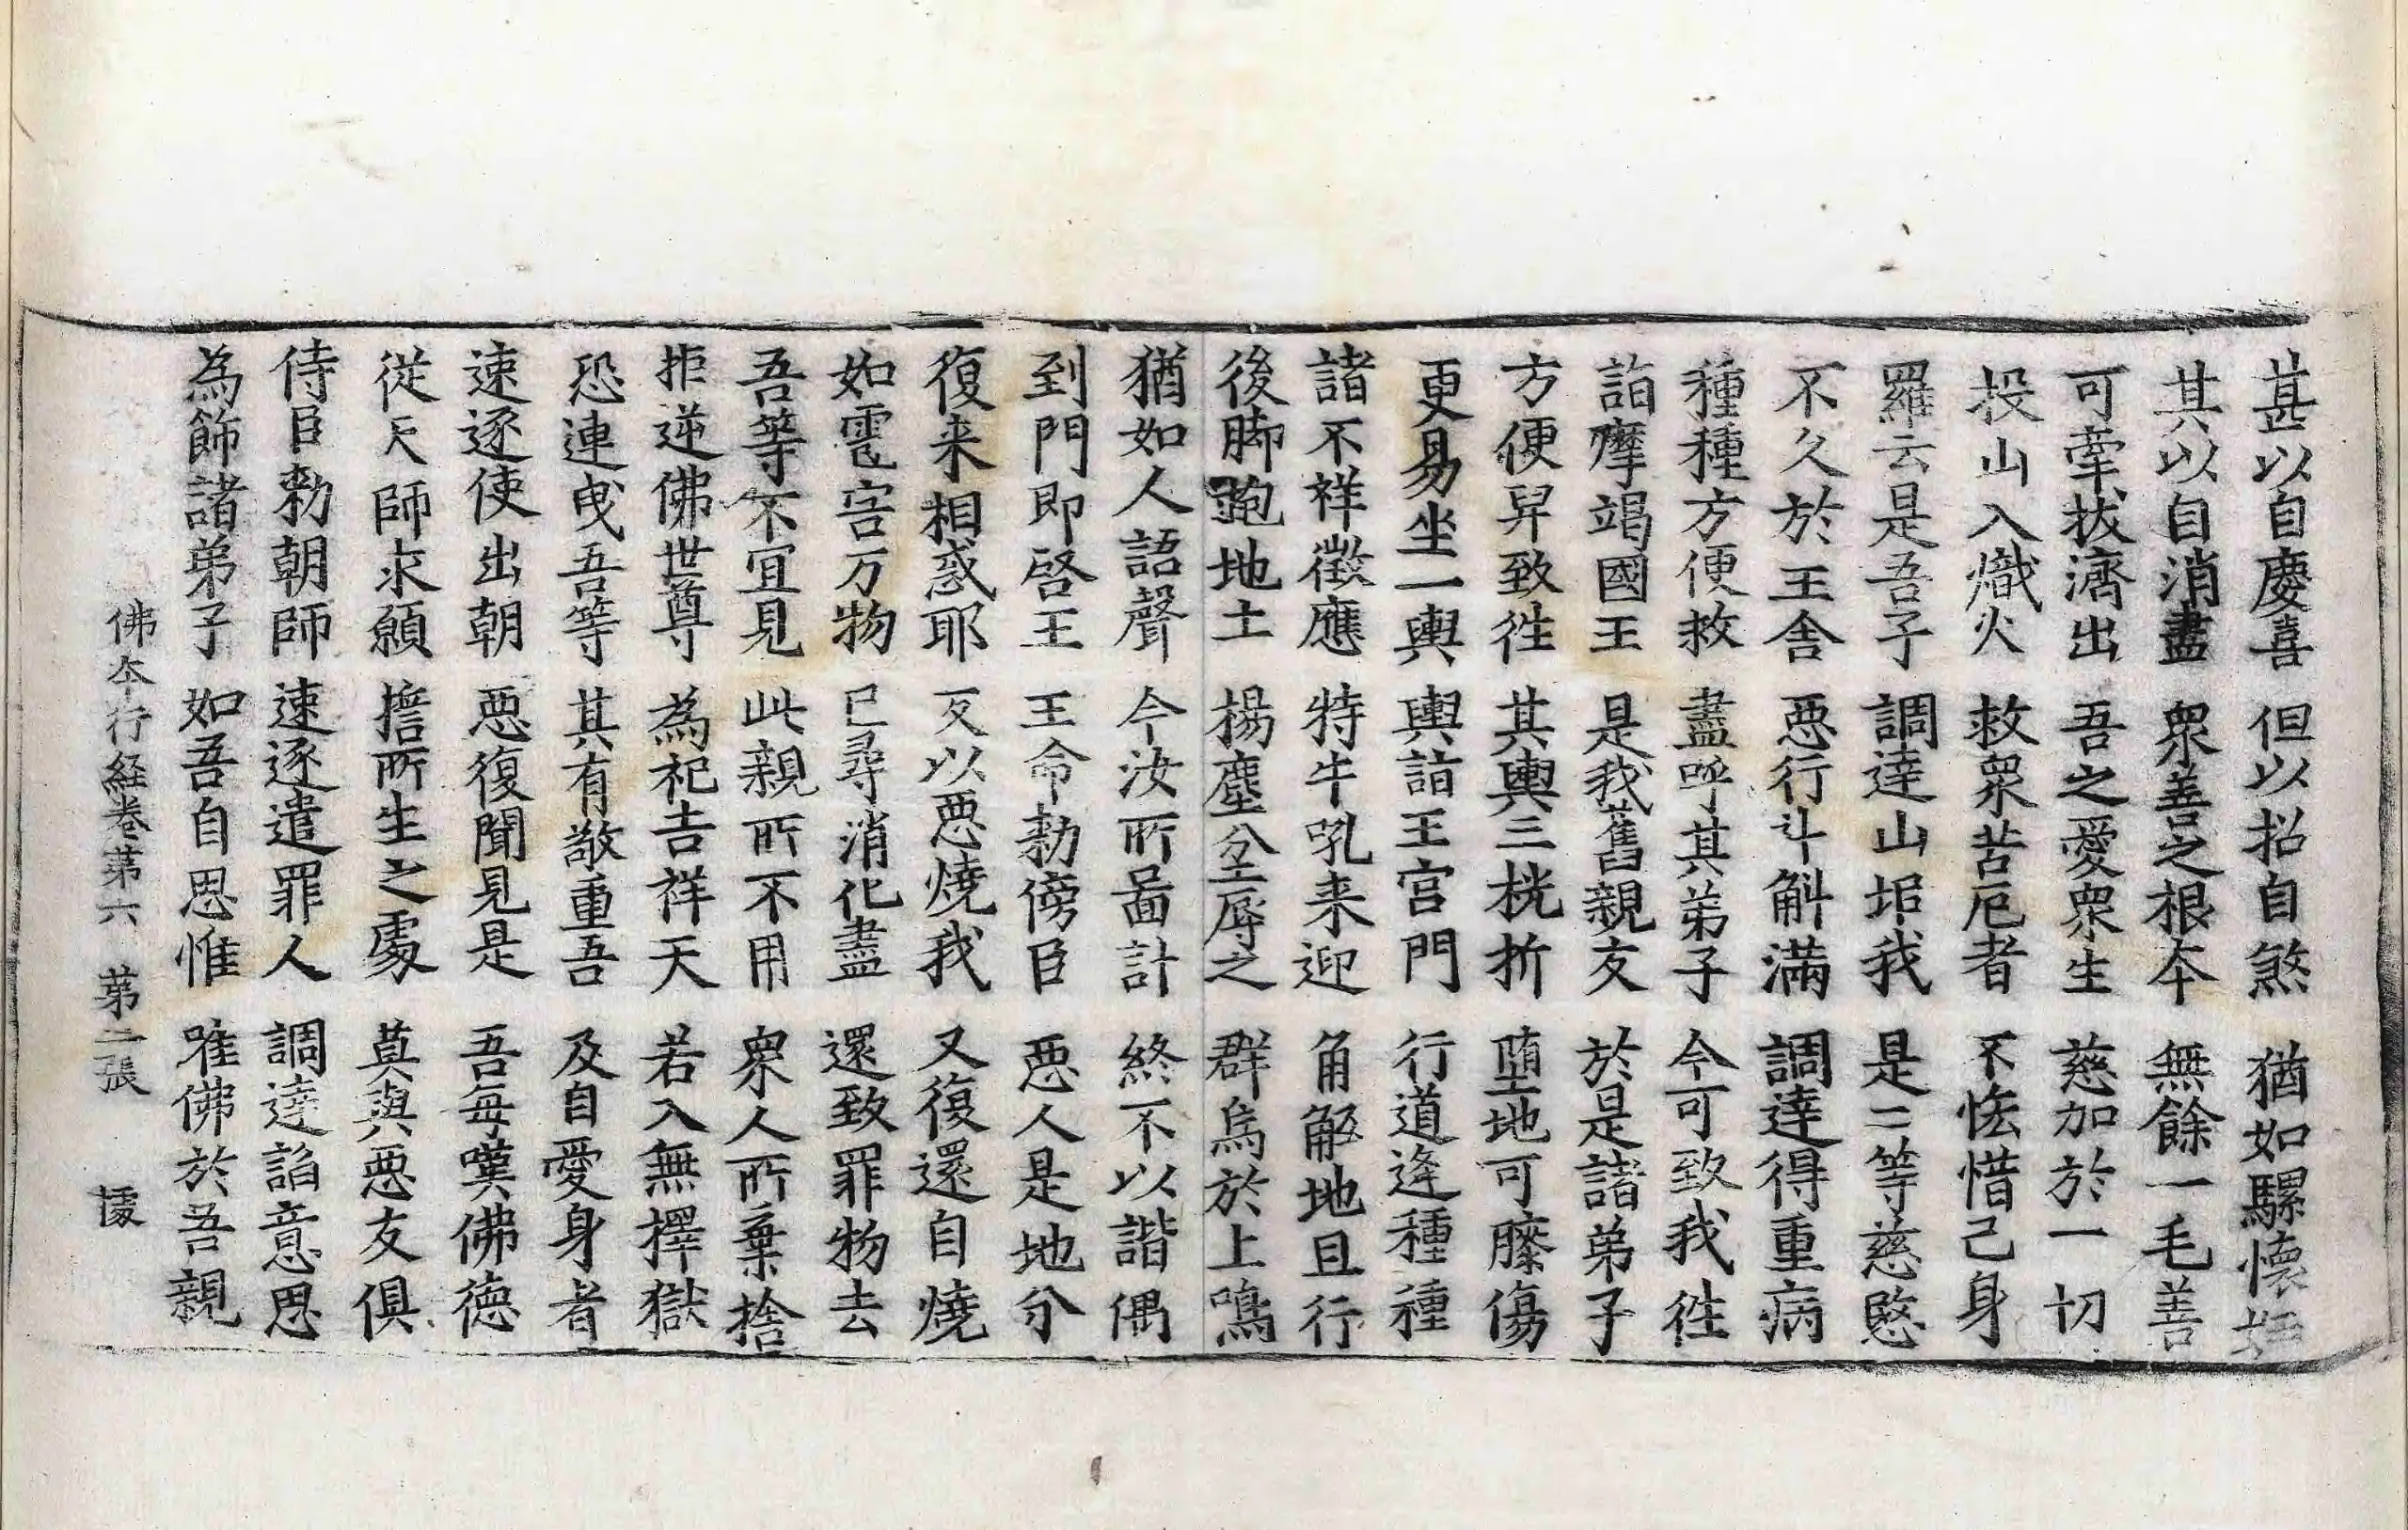 甚以自慶喜 但以招自煞 猶如騾懷妊
其以自消盡 衆善之根本 無餘一毛善
可牽拔濟出 吾之愛衆生 慈加於一切
投山入熾火 救衆苦厄者 不恡惜己身
羅云是吾子 調達山垖我 是二等慈愍
不久於王舍 惡行斗斛滿 調達得重病
種種方便救 盡呼其弟子 今可致我徃
詣摩竭國王 是我舊親友 於是諸弟子
方便舁致徃 其輿三桄折 墮地可㬺傷
更易坐一輿 輿詣王宮門 行道逢種種
諸不祥徵應 特牛吼来迎 角觧地且行
後脚跑地土 揚塵坌辱之 群烏於上鳴
猶如人語聲 今汝所啚計 終不以諧偶
到門即啓王 王命勑傍臣 惡人是地分
復来相惑耶 反以惡燒我 又復還自燒
如雹害万物 已尋消化盡 還致罪物去
吾等不宜見 此親所不用 衆人所棄捨
拒逆佛世尊 為祀吉祥天 若入無擇獄
恐連曳吾等 其有敬重吾 及自愛身者
速逐使出朝 惡復聞見是 吾每嘆佛德
從天師求願 擔所生之處 莫與惡友俱
侍臣勑朝師 速逐遣罪人 調達諂意思
為飾諸弟子 如吾自思惟 唯佛於吾親
佛本行経卷第六 苐二張 㯋